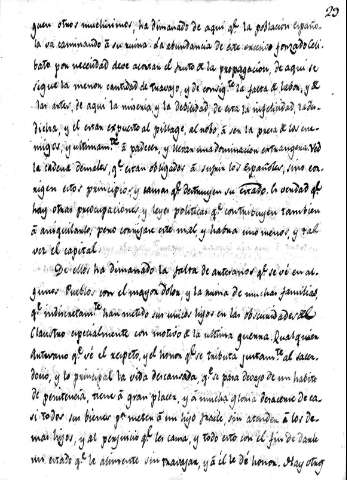 29
guen otros muchisimos, ha dimanado de aqui q.e la poblacion españo-
la va caminando à su ruina. La abundancia de este excesivo forzado Celi-
bato por necesidad deve acortar el fruto de la propagacion, de aqui se
sigue la menor cantidad de travajo, y de consig.te la falta de labor, y de
las artes, de aqui la miseria, y la devilidad, de esta la infelicidad, y des-
dicha, y el estàr expuesto al pillage, al robo, à ser la presa de los ene-
migos, y ultimam.te à padecer, y llevar una dominacion extrangera. Ved
la cadena de males, q.e estan obligados à sufrir los Españoles, sino co-
rrigen estos principios, y causas q.e destruyen su estado. Es verdad q.e
hay otras preocupaciones, y leyes politicas q.e contribuyen tambien
à aniquilarlo, pero corrijase este mal y habrà uno menos, y tal
vez el capital.
De ellos ha dimanado la falta de artesanos q.e se vè en al-
gunos Pueblos con el mayor dolor, y la ruina de muchas familias,
q.e indiscretam.te han metido sus unicos hijos en las obscuridades del
Claustro especialmente con motivo de la ultima guerra. Qualquier
Artesano q.e vè el respeto, y el honor q.e se tributa juntam.te al sacer-
docio, y lo principal la vida descansada, q.e se pasa devajo de un habito
de penitencia, tiene à gran placer, y à mucha gloria deshacerse de ca-
si todos sus bienes p.a meter à un hijo frayle, sin atender à los de-
mas hijos, y al perjuicio q.e les causa, y todo esto con el fin de darle
un estado q.e le alimente sin travajar, y à èl le dè honor. Hay otras